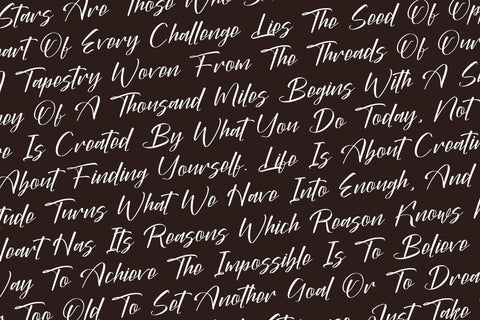 Stars Are Those Who
eart Of Every Challenge Lies The Seed Of Op
A Tapestry Woven From The Threads Of Our
ney Of A Thousand Miles Begins With A S
e Is Created By What You Do Today, Not
About Finding Yourself. Life Is About Creatin
tude Turns What We Have Into Enough, And
Heart Has Its Reasons Which Reason Knows
Way To Achieve The Impossible Is To Believe
Too Old To Set Another Goal Or To Drea
Just Take